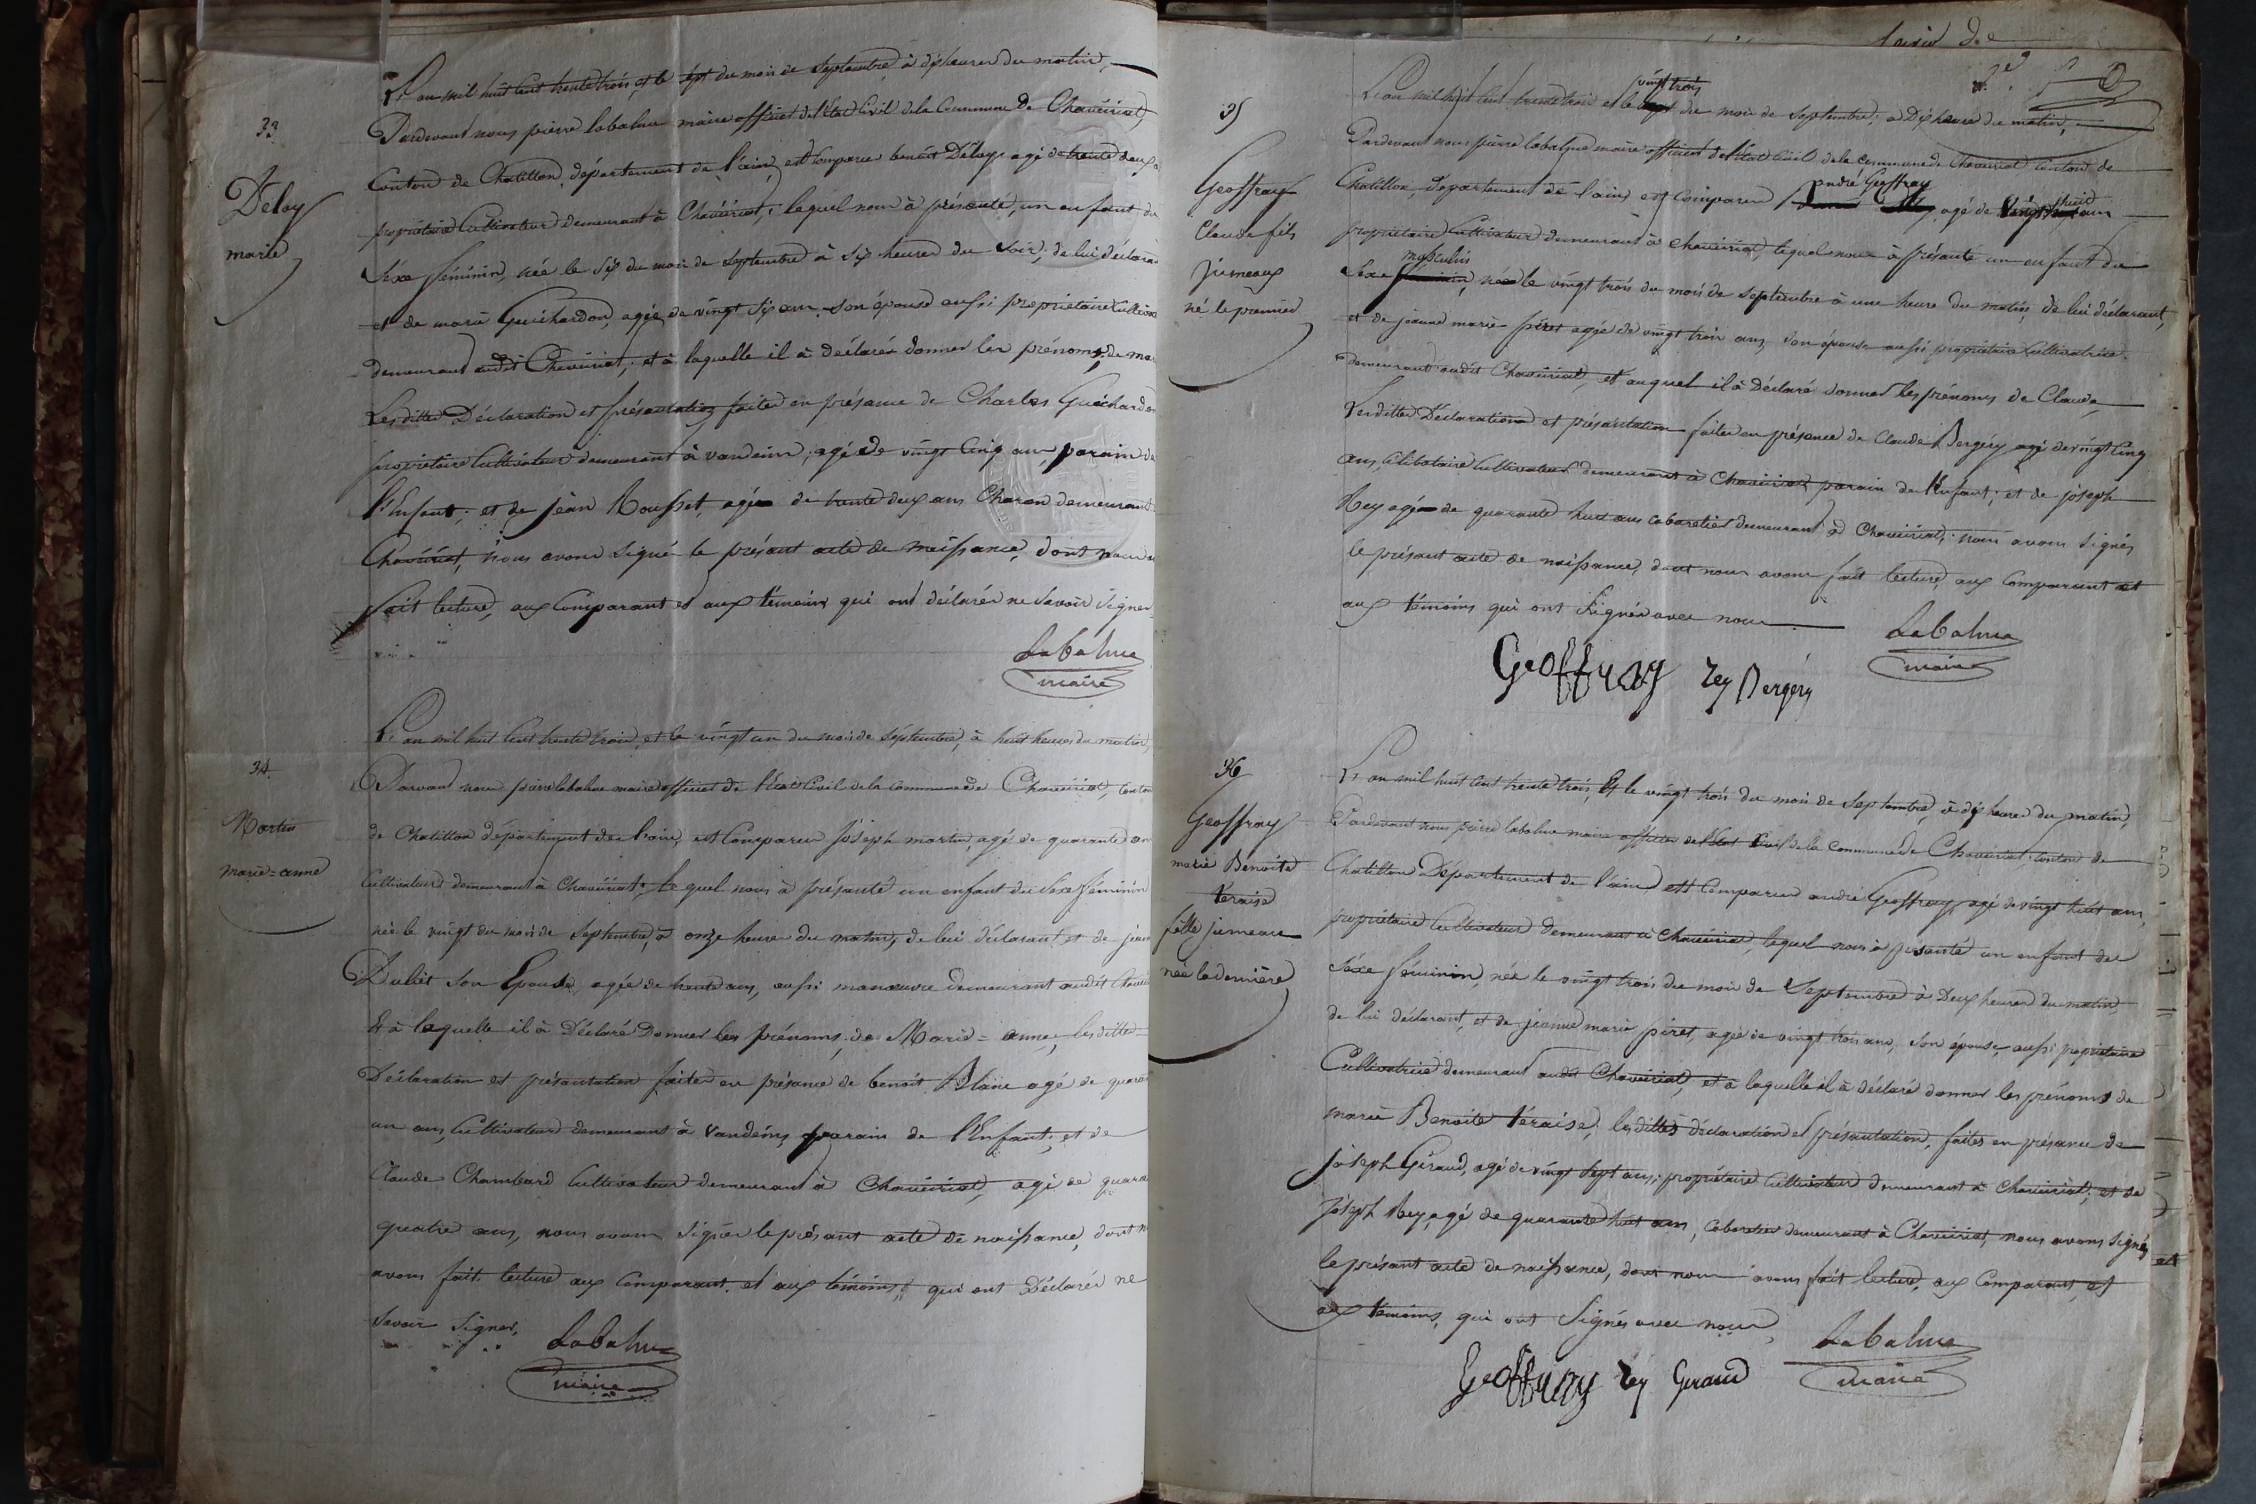 33
Déloy
marie
L'an mil huit cent trente trois, et le sept du mois de septembre à dix heures du matin,
Pardevant nous pierre labalme maire officier de l'état Civil de la Commune de Chaveiriat,
Canton de Chatillon, département de l'ain, est Comparu benoit Déloy agé de trente deux
propriétaire Cultivateur demeurant à Chaveiriat, lequel nous à présenté, un enfant du
Séxe féminin, née le Six du mois de septembre à Six heures du Soir, de lui déclarant
et de marie Guichardon, agée de vingt Six ans son épouse aussi propriétaire Cultiva
demeurant audit Chaveiriat, et à laquelle il à déclaré donner les prénoms de ma
Lesdittes Déclaration et présentation faites en présance de Charles Guichardon
propriétaire Cultivateur demeurant à vandeins, agé de vingt Cinq ans parain de
l'Enfant; et de jean Rousset, agé de trente deux ans Charon demeurant
Chaveiriat, nous avons Signé le présant acte de naissance, dont nous
fait lecture, aux Comparant et aux témoins qui ont déclarés ne Savoir Signer
Labalme
maire
34
Martin
marie=anne
L'an mil huit Cent trente trois, et le vingt un du mois de Septembre, à huit heures du matin,
Parvant nous pierre labalme maire officier de l'état Civil de la commune de Chaveiriat, Canton
de Chatillon département de l'ain, est Comparu joseph martin, agé de quarante an
Cultivateur demeurant à Chaveiriat, lequel nous à présanté un enfant du Séxe féminin
née le vingt du mois de Septembre, à onze heure du matin, de lui déclarant et de jean
Dubet Son Epouse, agée de trente ans, aussi manœuvre demeurant audit Chavei
Et à laquelle il à Déclaré Donner les prénoms, de Marie=anne, lesdittes
Déclaration et présantation faites en présance de benoit Blanc agé de quaran
un ans, Cultivateur demeurant à Vandeins, parain de l'Enfant; et de
Claude Chambard Cultivateur demeurant à Chaveiriat, agé de quara
quatre ans, nous avons Signer le présant acte de naissance, dont n
avons fait lecture aux Comparant et aux témoins, qui ont Déclarés ne
Savoir Signer,
Labalme
maire
35
Geoffray
Claude fils
jumeaux
né le premier
vingt trois
L'an mil huit cent trente trois et le du mois de Septembre, à Dix heure du matin,
Pardevant nous pierre labalme maire officier de l'état Civil de la commune de Chaveiriat Canton de
andré Geoffray huit
Chatillon, département de l'ain, est Comparu agé de vingt ans
propriétaire Cultivateur demeurant à Chaveiriat, lequel nous à présanté un enfant du
masculin
Séxe féminin, née le vingt trois du mois de Septembre à une heure du matin, de lui déclarant,
et de jeanne marie piret agée de vingt trois ans, Son épouse aussi propriétaire Cultivatrice
demeurant audit Chaveiriat, et auquel il à Déclaré donner les prénoms de Claude,
Lesdittes Déclaration et présantation faites en présance de Claude Bergéry agé de vingt Cinq
ans, Célibataire Cultivateur demeurant à Chaveiriat parain de l'Enfant; et de joseph
Rey agé de quarante huit ans cabaretier demeurant à Chaveiriat, nous avons Signés
le présant acte de naissance, dont nous avons fait lecture, aux Comparant et
aux témoins qui ont Signés avec nous
Labalme
maire
Geoffray Rey Bergéry
36
Geoffray
marie Benoite
téraise
fille jumeau
née la dernière
L'an mil huit cent trente trois, Et le vingt trois du mois de Septembre, à dix heures du matin,
Pardevant nous pierre labalme maire officier de l'état Civil de la Commune de Chaveiriat, Canton de
Chatillon Département de l'ain, est Comparu andré Geoffray, agé de vingt huit ans,
propriétaire Cultivateur demeurant à Chaveiriat, lequel nous à présanté un enfant du
Séxe féminin, née le vingt trois du mois de Septembre à Deux heures du matin
de lui déclarant, et de jeanne marie piret, agée de vingt trois ans, Son épouse, aussi propriétaire
Cultivatrice demeurant audit Chaveiriat, et à laquelle il à déclaré donner les prénoms de
marie Benoite téraise, lesdittes déclaration et présantation, faites en présance de
joseph Géraud, agé de vingt sept ans, propriétaire Cultivateur demeurant à Chaveiriat, et de
Joseph Rey, agé de quarante huit ans, Cabaretier demeurant à Chaveiriat, nous avons Signés
le présant acte de naissance, dont nous avons fait lecture, aux Comparant, et
aux témoins, qui ont Signés avec nous,
Labalme
maire
Geoffray Rey Geraud